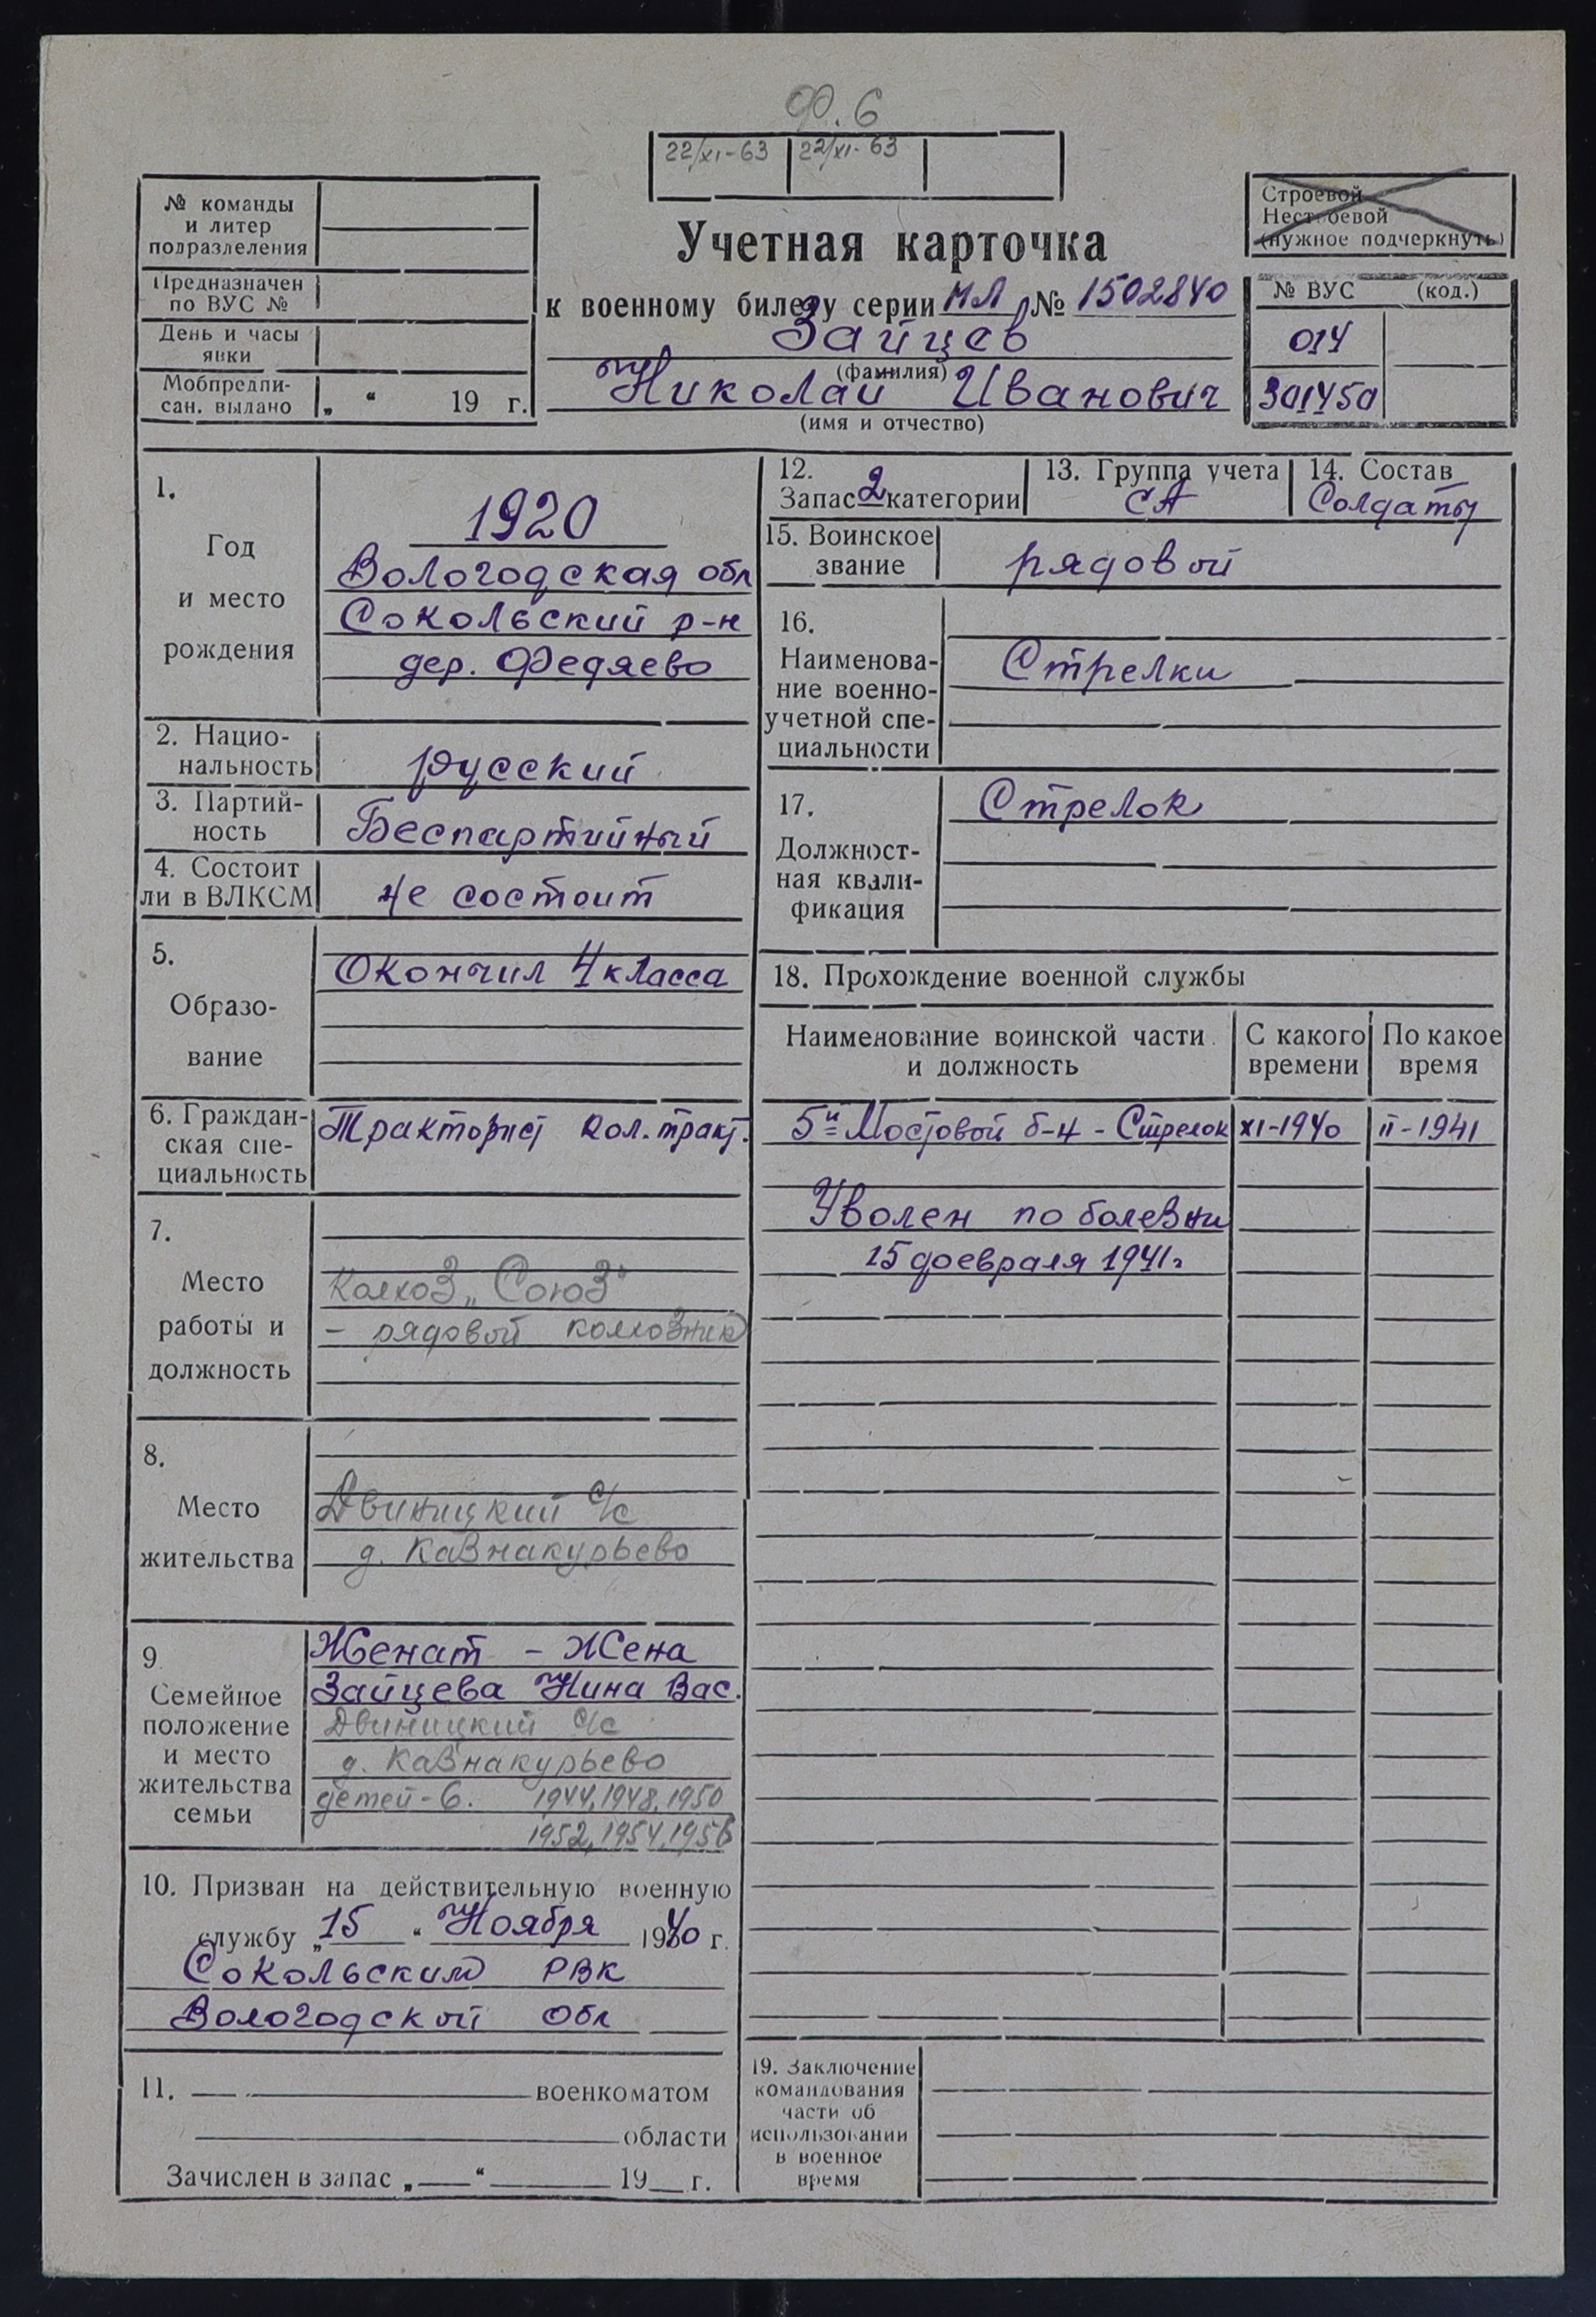 Ф. 6
22/XI-63 22/XI-63
№ команды
и литер
подразделения
Предназначен
по ВУС №
День и часы
явки
Мобпредпи-
сан. выдано „ “ 19 г.
Учетная карточка
к военному билету серии МЛ № 1502840
Зайцев
(фамилия)
Николай Иванович
(имя и отчество)
Строевой
Нестроевой
(нужное подчеркнуть)
№ ВУС (код.)
014
301450
1.
Год
и место
рождения
1920
Вологодская обл
Сокольский р-н
дер. Федяево
2. Нацио-
нальность
русский
3. Партий-
ность
Беспартийный
4. Состоит
ли в ВЛКСМ
не состоит
5.
Образо-
вание
Окончил 4 класса
6. Граждан-
ская спе-
циальность
Тракторист кол. тракт.
7.
Место
работы и
должность
Колхоз „Союз"
- рядовой колхозник
8.
Место
жительства
Двиницкий с/с
д. Кавнакурьево
9
Семейное
положение
и место
жительства
семьи
Женат - Жена
Зайцева Нина Вас.
Двиницкий с/с
д. Кавнакурьево
детей - 6. 1944, 1948, 1950
1952, 1954, 1956
10. Призван на действительную военную
службу „15“ Ноября 1940 г.
Сокольским РВК
Вологодской обл
11. военкоматом
области
Зачислен в запас „ “ 19 г.
12.
Запас 2 категории
13. Группа учета
СА
14. Состав
Солдаты
15. Воинское
звание
рядовой
16.
Наименова-
ние военно-
учетной спе-
циальности
Стрелки
17.
Должност-
ная квали-
фикация
Стрелок
18. Прохождение военной службы
Наименование воинской части
и должность
С какого
времени
По какое
время
5й Мостовой б-н - Стрелок XI-1940 II-1941
Уволен по болезни
15 февраля 1941г
19. Заключение
командования
части об
использовании
в военное
время